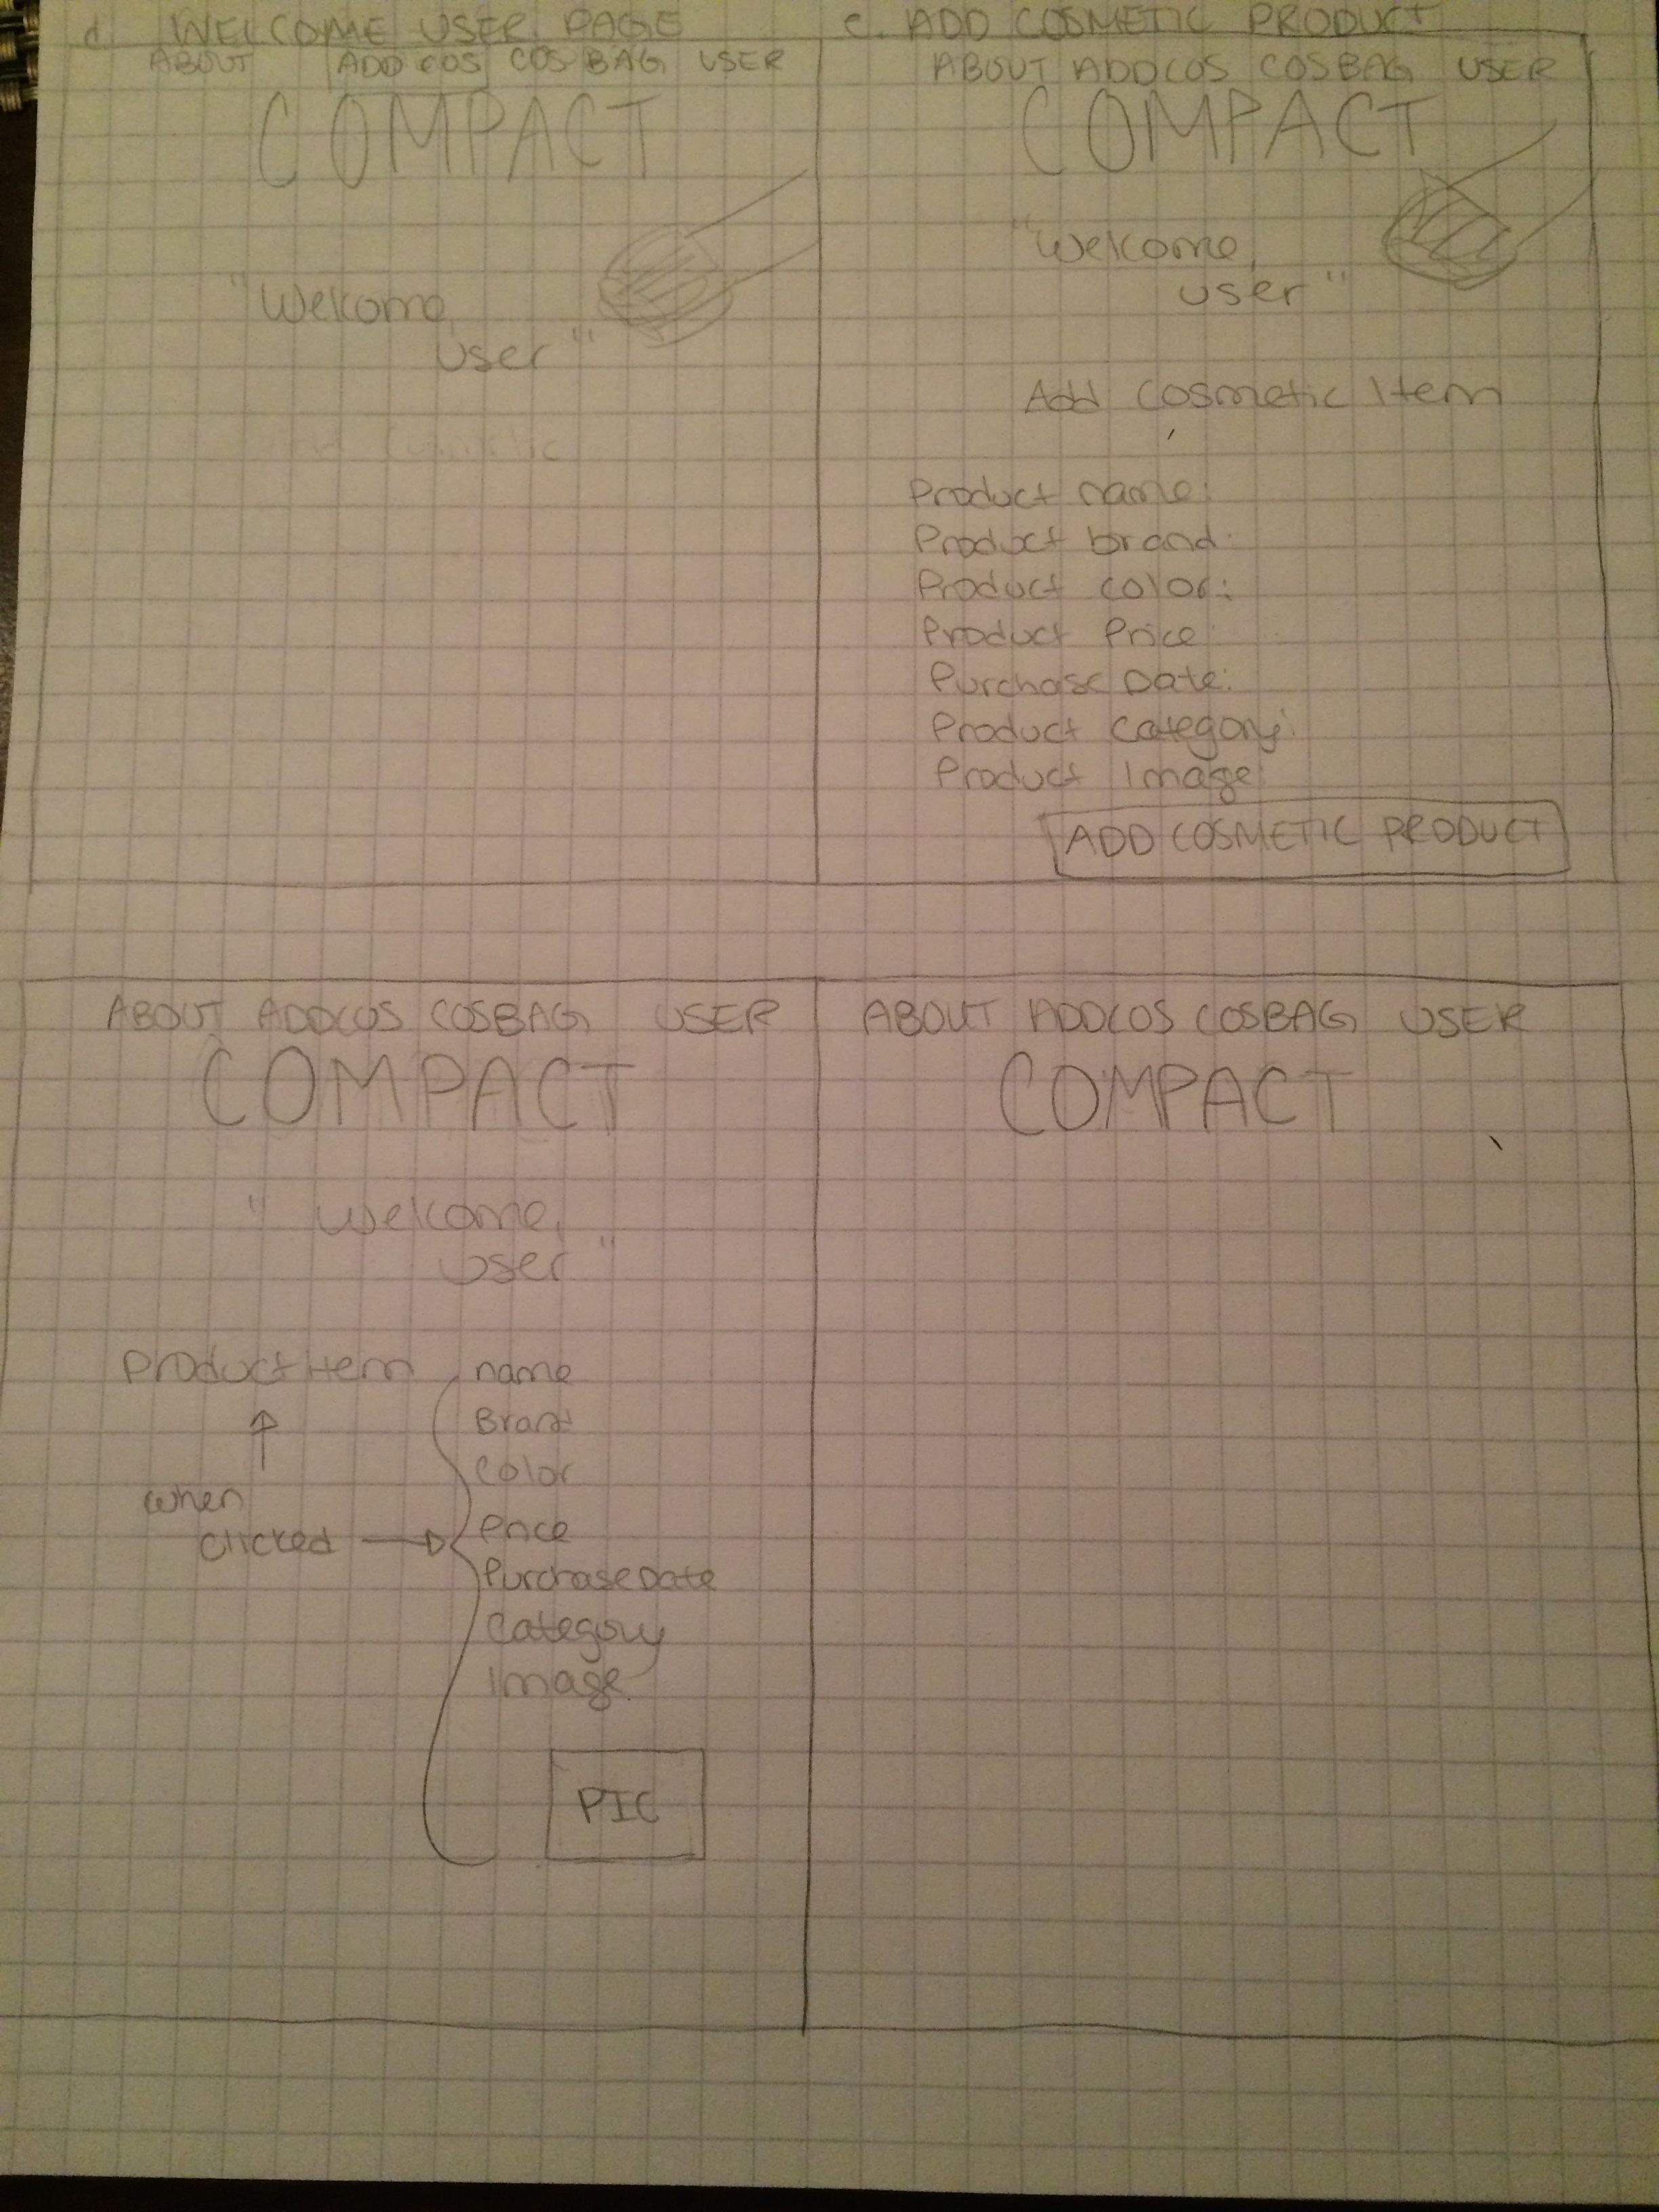 d. WELCOME USER PAGE
ABOUT ADD COS COS BAG USER
COMPACT
"Welcome,
user"
e. ADD COSMETIC PRODUCT
ABOUT ADDCOS COSBAG USER
COMPACT
"Welcome,
user"
Add Cosmetic Item
Product name:
Product brand:
Product color:
Product Price:
Purchase Date:
Product Category:
Product Image:
ADD COSMETIC PRODUCT
ABOUT ADDCOS COSBAG USER
COMPACT
"Welcome,
user"
Product item
when
clicked
name
Brand
Color
Price
Purchase Date
Category
Image
PIC
ABOUT ADDCOS COSBAG USER
COMPACT